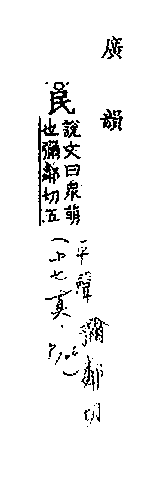 廣韻
民
說文曰衆萌
也彌鄰切五
(平聲
十七真.
彌鄰切